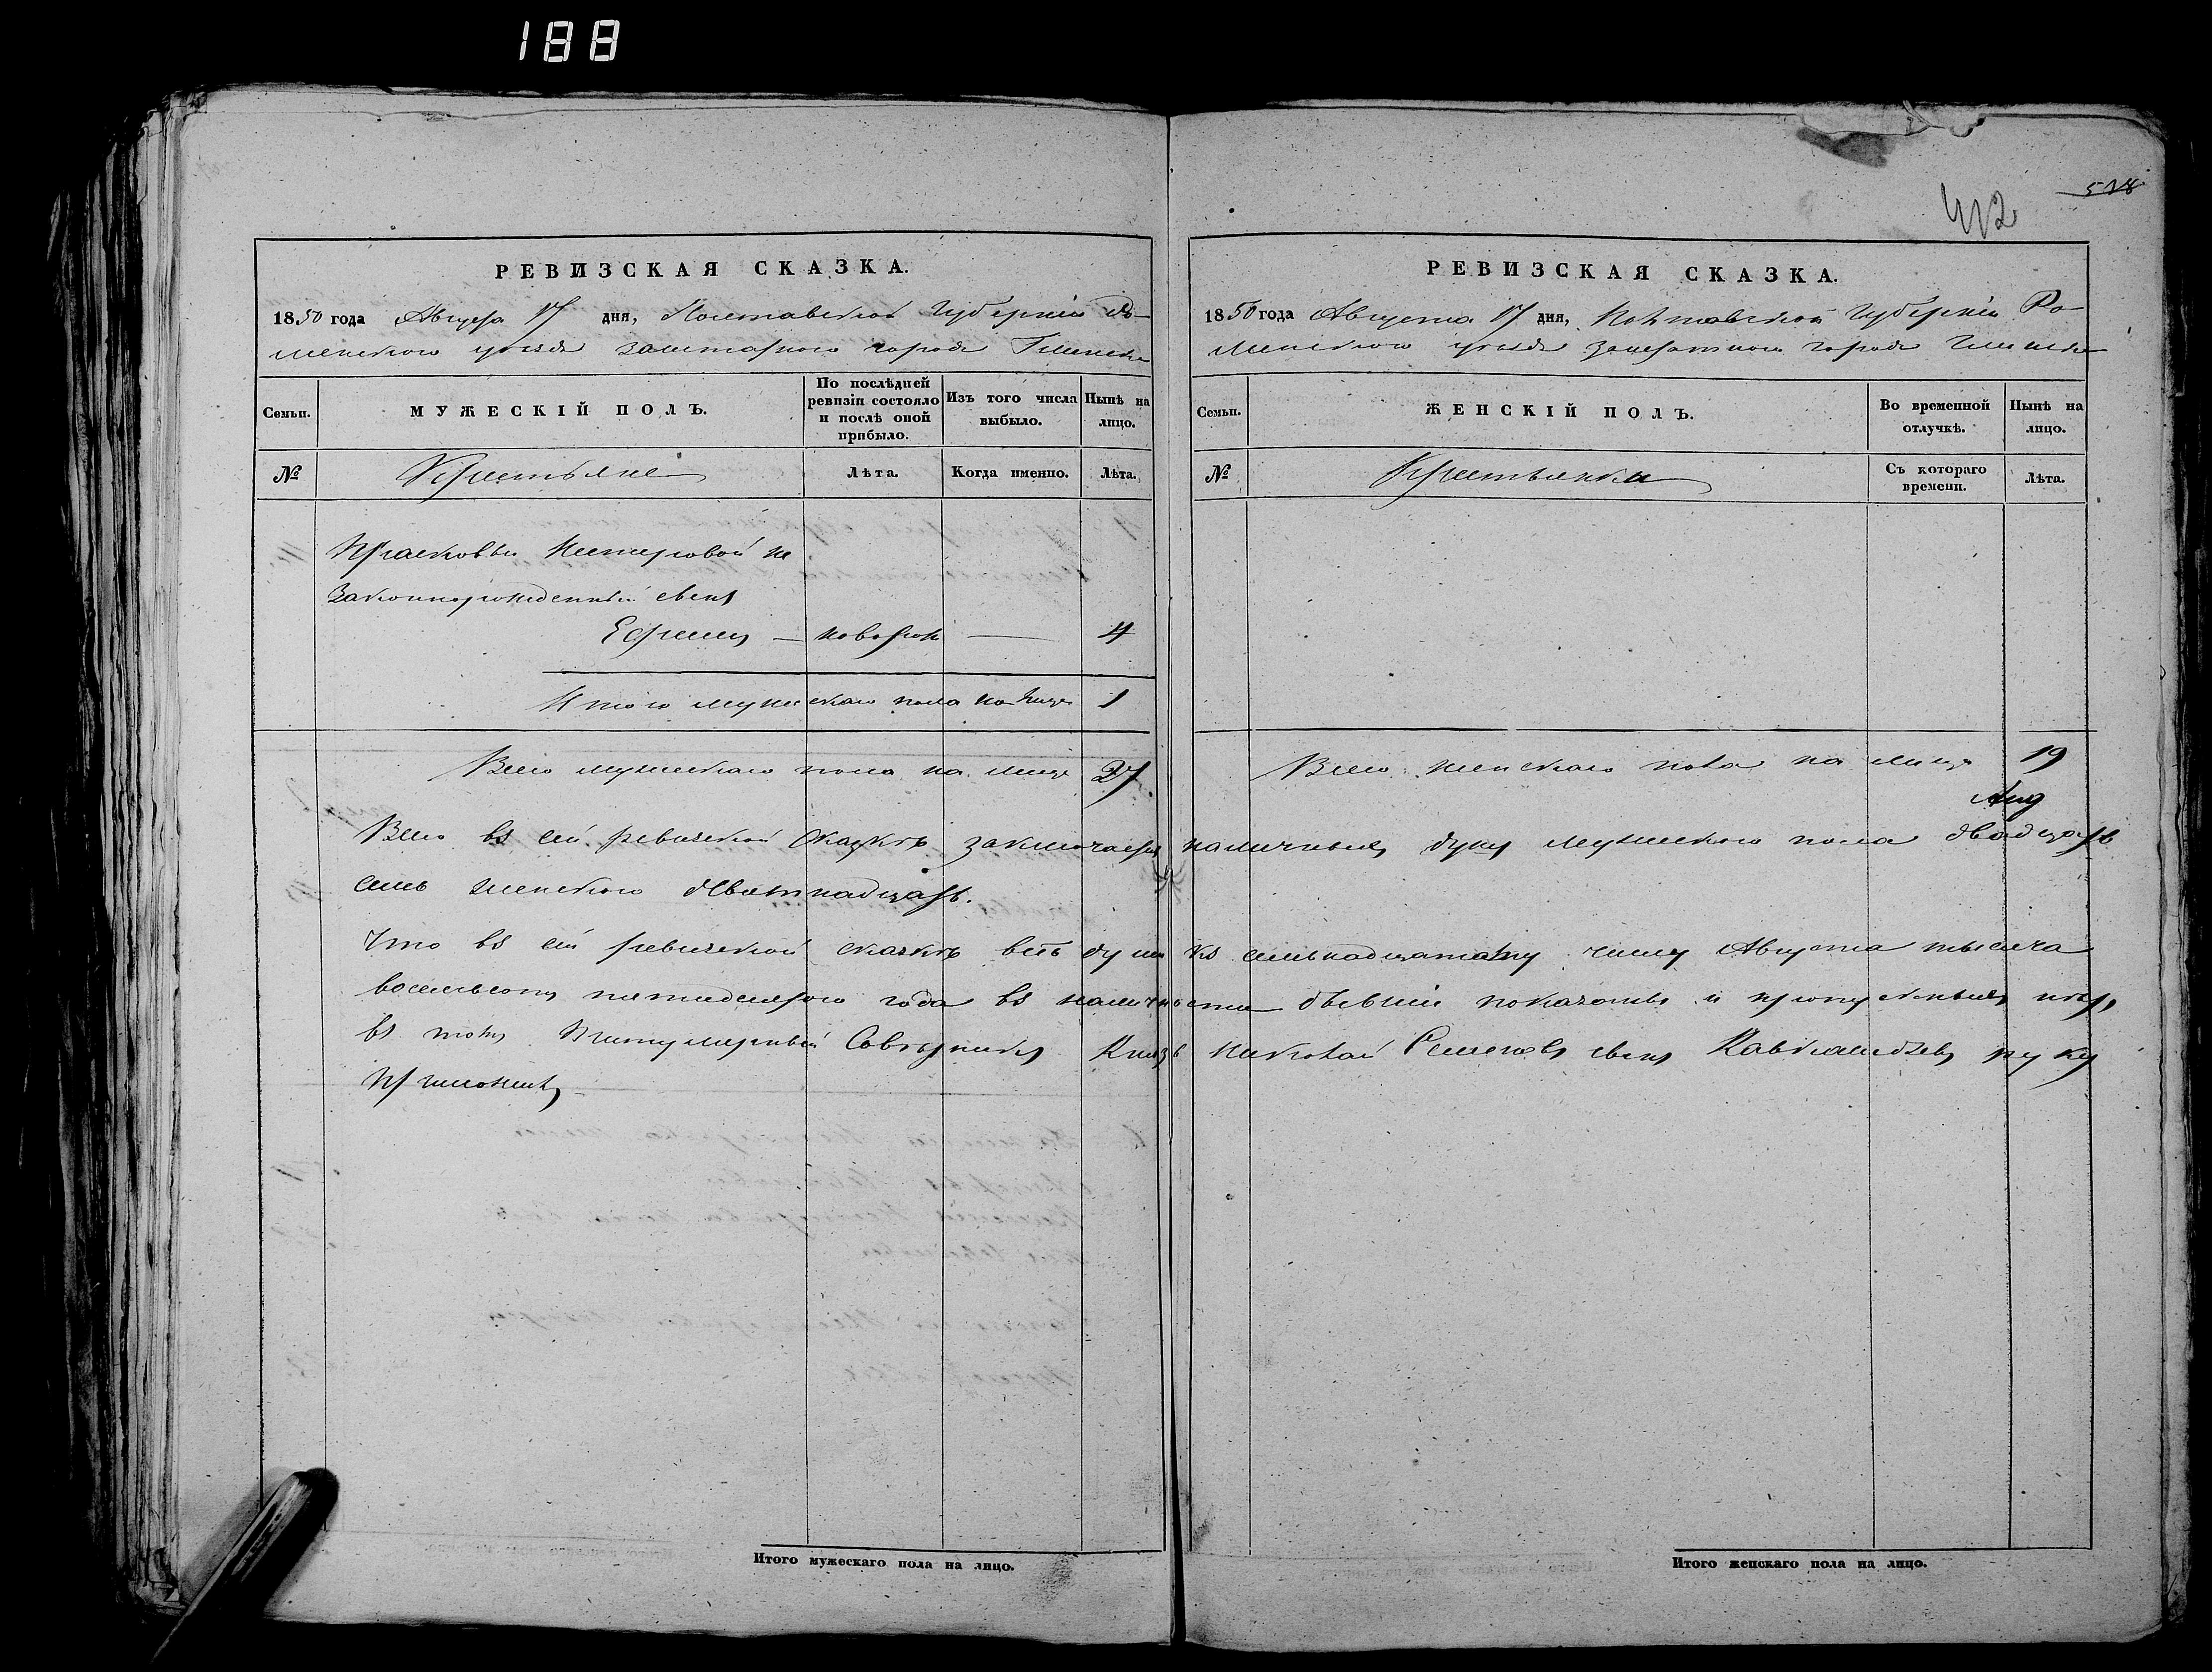 188
412
518
РЕВИЗСКАЯ СКАЗКА.
1850 года Августа 17 дня, Полтавской Губерніи Ро-
менского уезда заштатного города Глинска
Семьи.
МУЖЕСКІЙ ПОЛЪ.
По послѣдней ревизіи состояло и послѣ оной прибыло.
Изъ того числа выбыло.
Нынѣ на лицо.
№
Крестьяне
Лѣта.
Когда именно.
Лѣта.
Прасковьи Нестеровой не
законнорожденный сынъ
Ефимъ — новорож — 4
Итого мужескаго пола на лицо 1
Всего мужескаго пола на лицо 27
РЕВИЗСКАЯ СКАЗКА.
1850 года Августа 17 дня, Полтавской Губерніи Ро-
менского уезда заштатного города Глинска
Семьи.
ЖЕНСКІЙ ПОЛЪ.
Во временной отлучкѣ.
Нынѣ на лицо.
№
Крестьянки
Съ котораго времени.
Лѣта.
Всего женскаго пола на лице 19
Всего въ сей ревизской сказкѣ заключается наличныхъ душъ мужеского пола двадцать
семь женского девятнадцать.
Что въ сей ревизской сказкѣ всѣ души къ семьнадцатому числу Августа тысяча
восемьсотъ пятидесятого года въ наличности бывшіе показаны и пропущенныхъ нѣтъ,
въ томъ Титулярный Совѣтникъ Князь Николай Семеновъ сынъ руку
приложилъ
Итого мужескаго пола на лицо.
Итого женскаго пола на лицо.